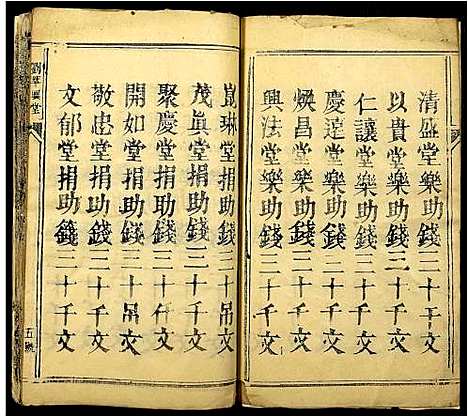 清盛堂樂助錢二十千文
以貴堂樂助錢二十千文
仁讓堂樂助錢二十千文
慶達堂樂助錢二十千文
煥昌堂樂助錢二十千文
興法堂樂助錢二十千文
崑琳堂捐助錢二十吊文
茂眞堂捐助錢二十千文
聚慶堂捐助錢二十仟文
開如堂捐助錢二十吊文
敬忠堂捐助錢二十千文
文郁堂捐助錢二十千文